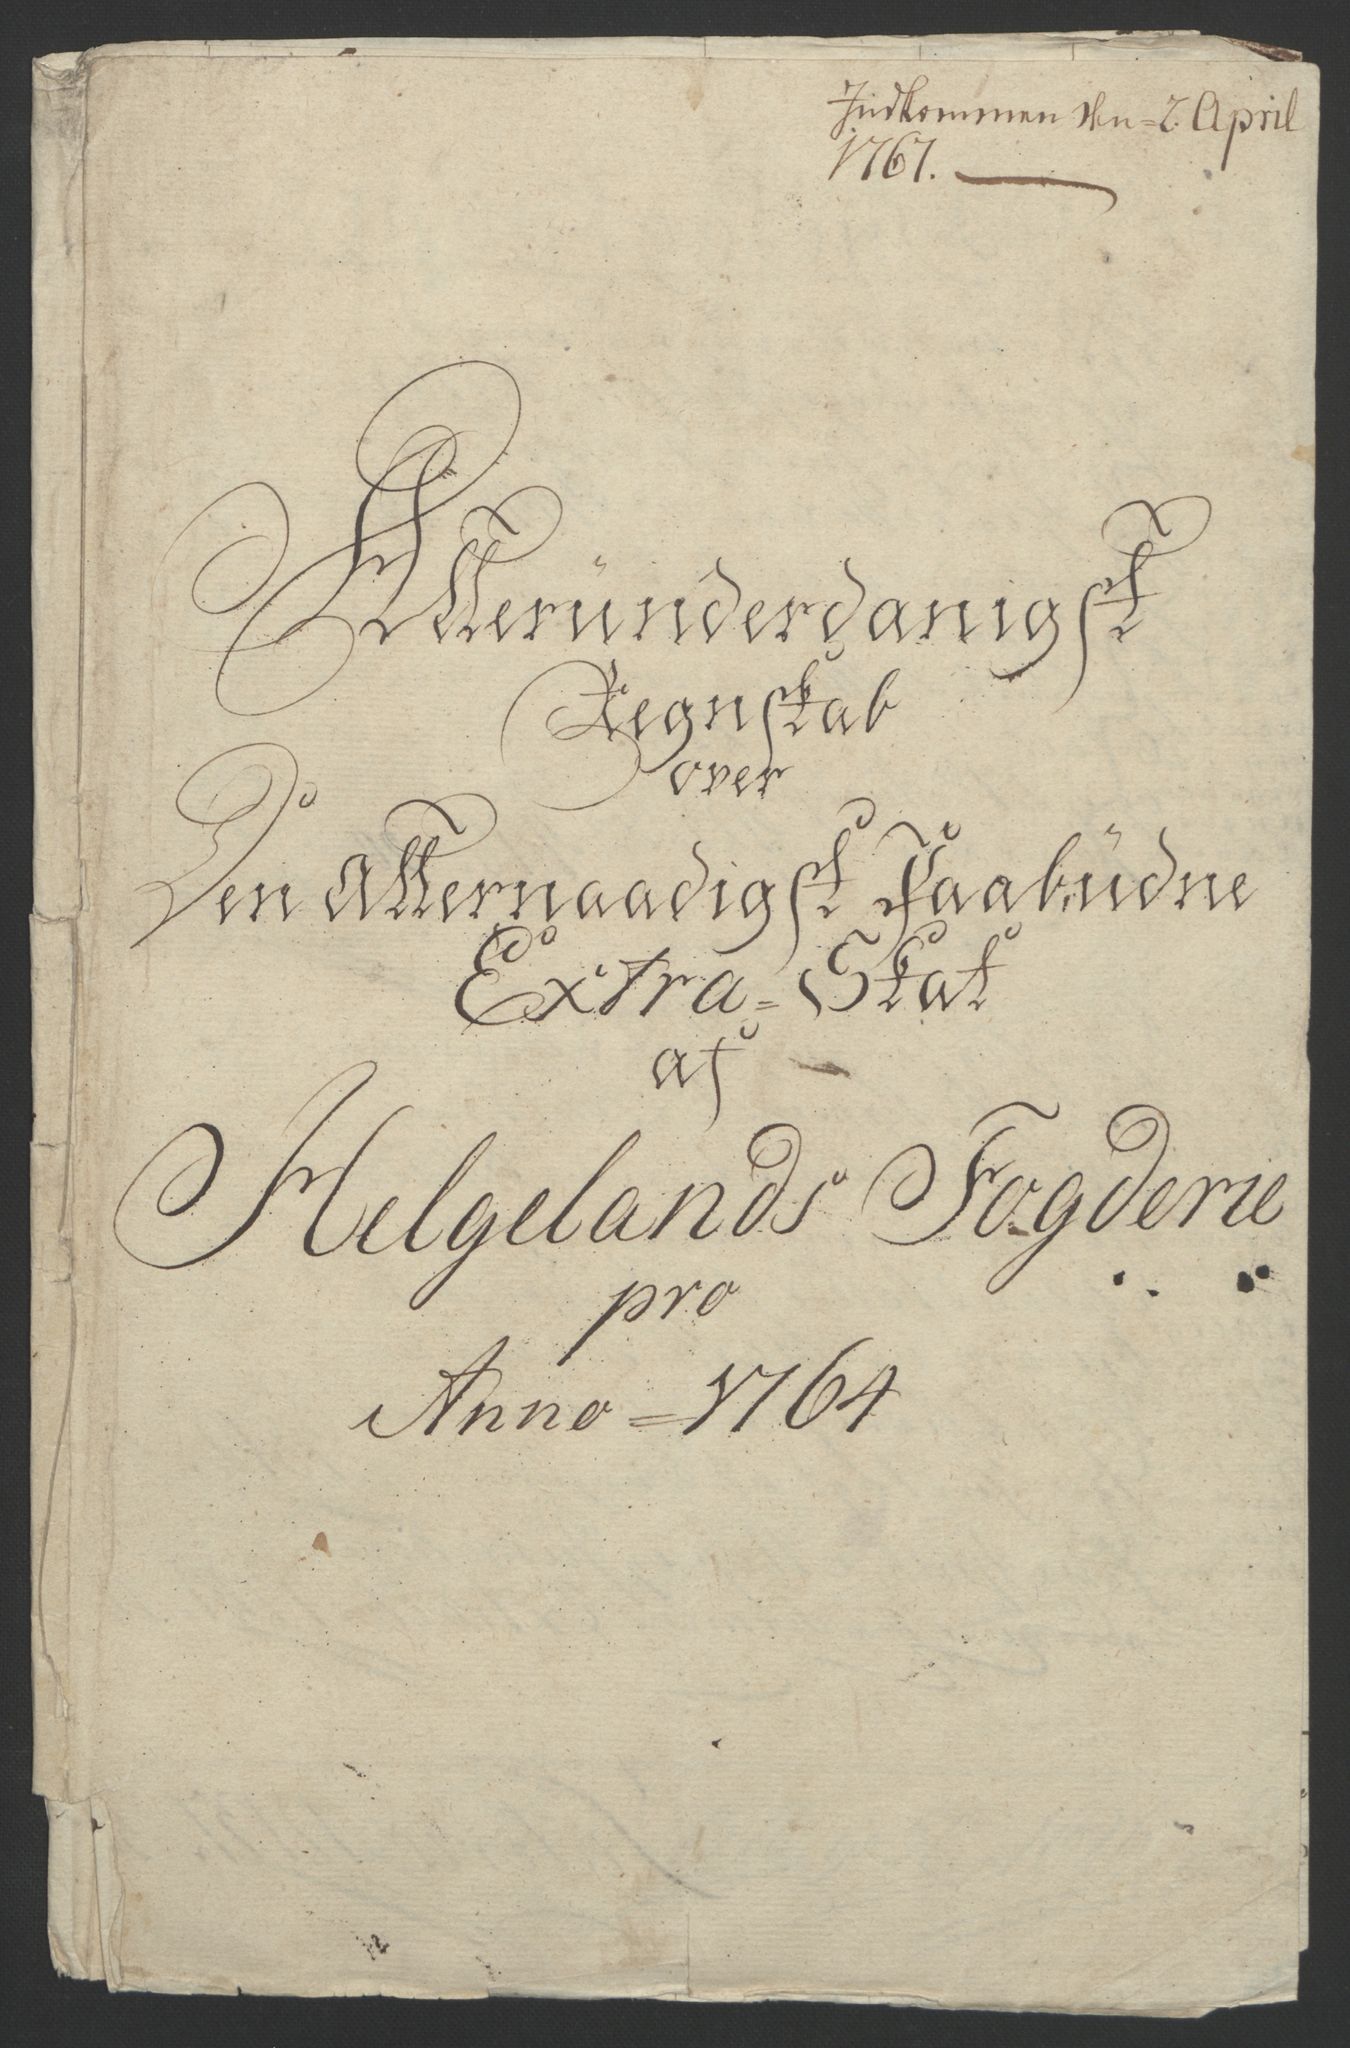 Indkommen den = 2. April
1767.
Alleründerdanigst
Regnskab
over
Den Allernaadigst Paabüdne
Extra = Skat
af
Helgelands Fogderie
pro
Anno = 1764